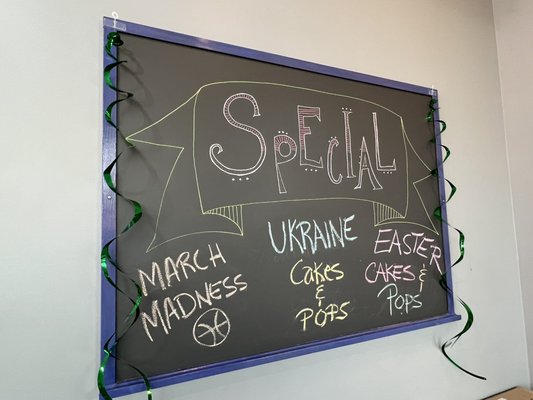 SPECIAL
MARCH
MADNESS
UKRAINE
Cakes
&
POPS
EASTER
CAKES &
POPS